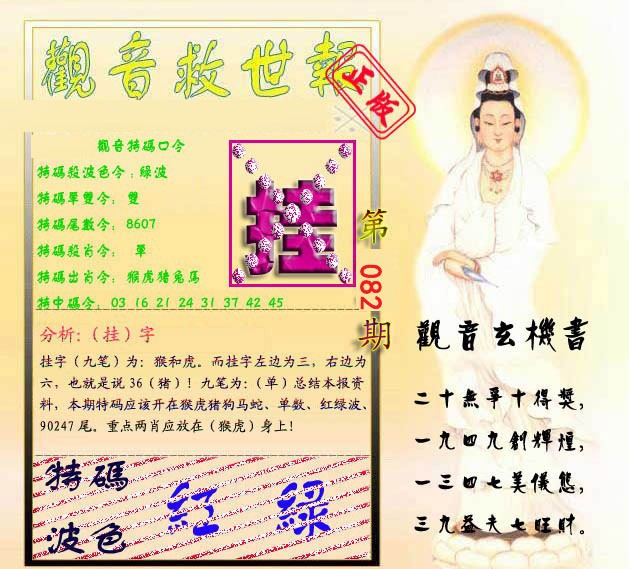 觀音救世報
正版
觀音特碼口令
特碼殺波色令：綠波
特碼單雙令： 雙
特碼尾數令： 8607
特碼殺肖令： 單
特碼出肖令： 猴虎猪兔馬
特中碼令： 03 16 21 24 31 37 42 45
挂
第082期
分析:（挂）字
挂字（九笔）为：猴和虎。而挂字左边为三，右边为
六，也就是说 36（猪）！九笔为:（单）总结本报资
料，本期特码应该开在猴虎猪狗马蛇、单数、红绿波、
90247 尾。重点两肖应放在（猴虎）身上!
特碼
波色
红 绿
觀音玄機書
二十無爭十得獎，
一九四九創輝煌，
一三四七美儀態，
三九益夫七旺財。